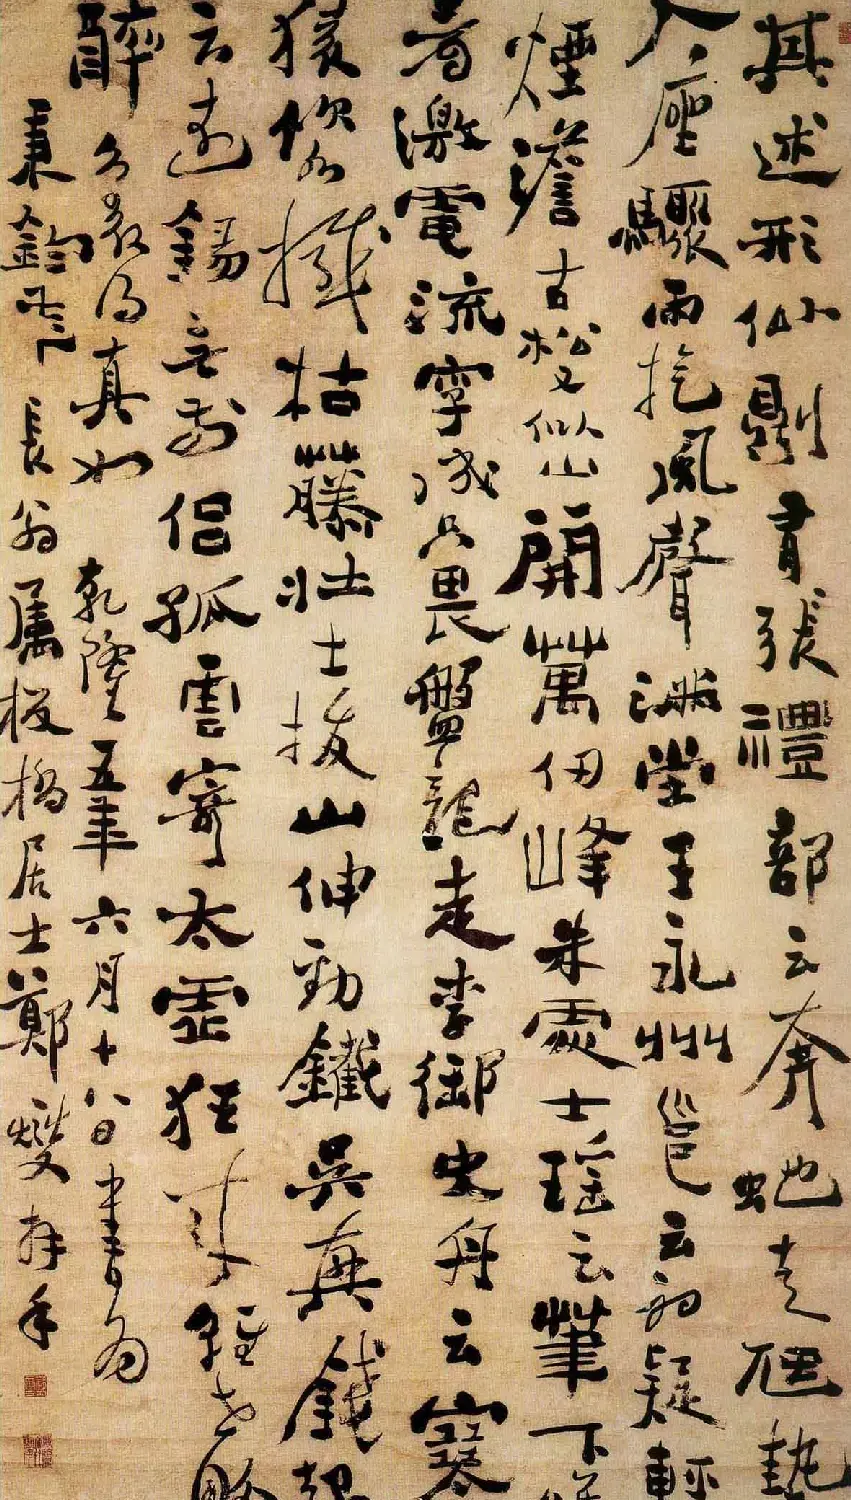 其述形似則有張禮部云奔蛇走虺勢
入座驟雨旋風聲滿堂王永州邕云初疑輕
煙澹古松又似山開萬仞峰朱處士瑤云筆下唯
看激電流字成只畏盤龍走李御史舟云寒
猿飲水撼枯藤壯士拔山伸勁鐵吳興錢起
云遠錫無前侶孤雲寄太虛狂來輕世界
醉裏得真如 乾隆五年六月十八日書為
秉鈞長翁属板橋居士鄭燮拜手